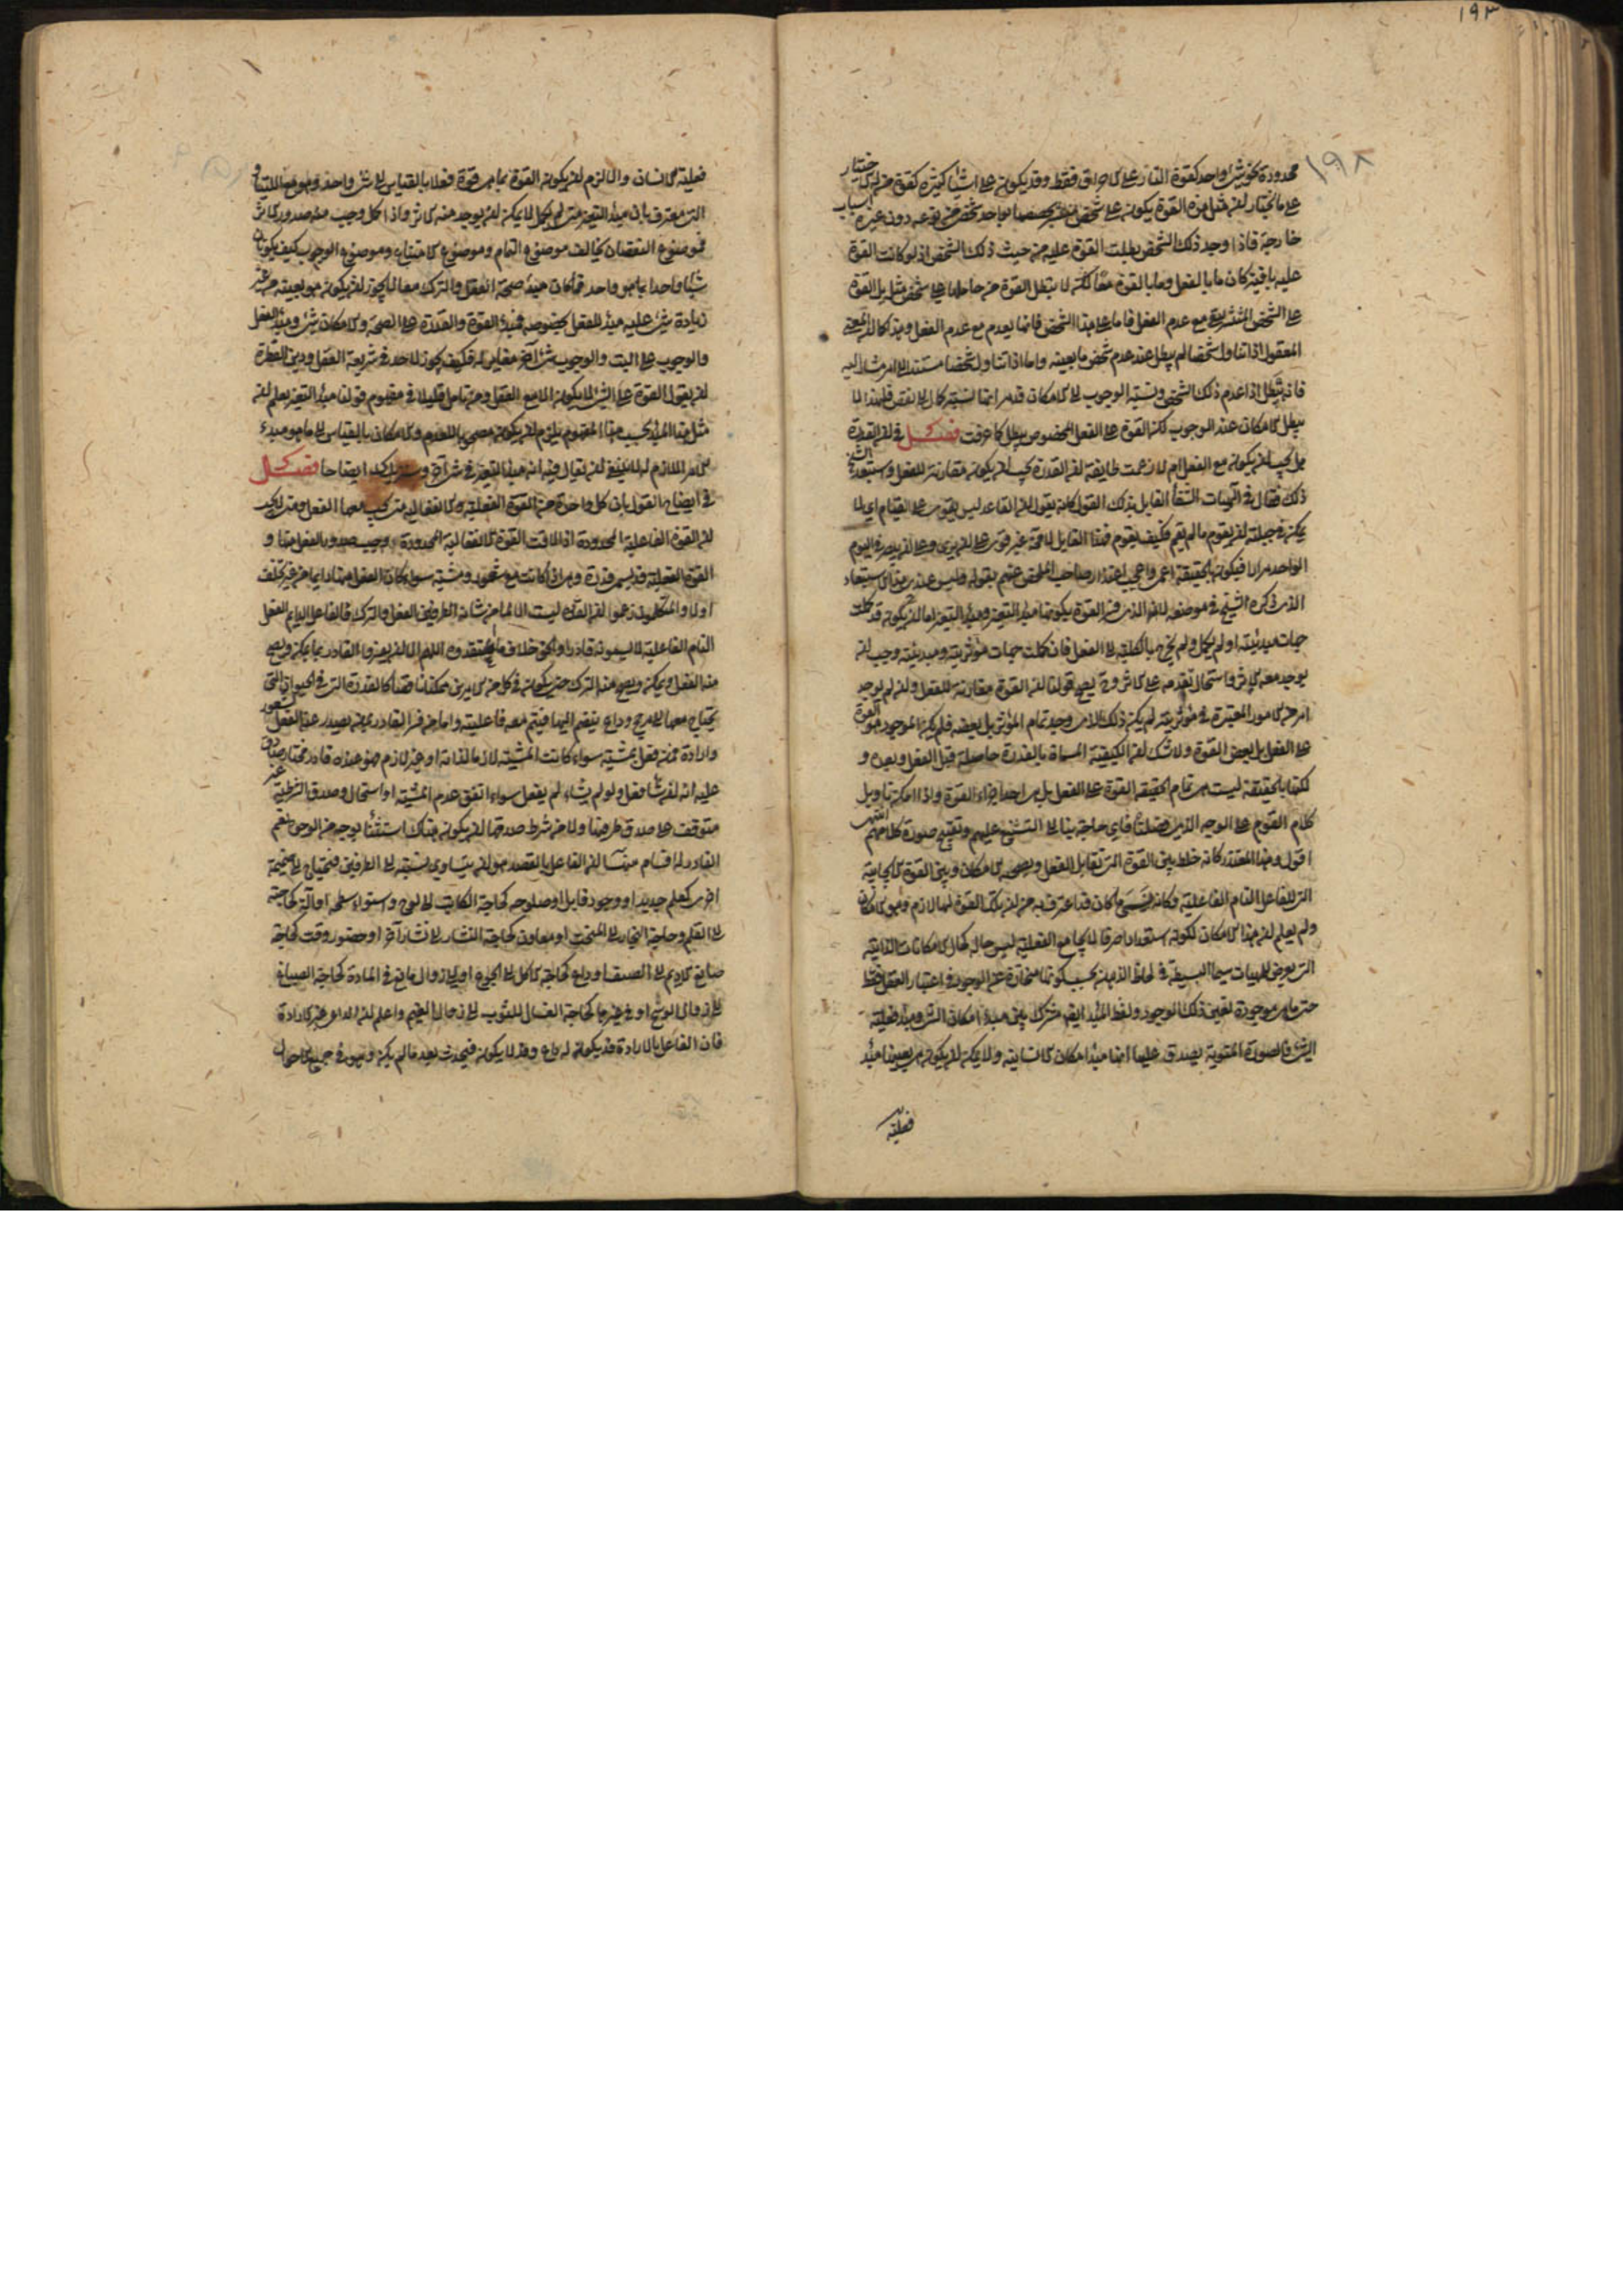 ١٩٣
١٩٨
محدودة نحو شئ واحد كقوة النار على الاحراق فقط وقد يكون على اشياء كثيرة كقوة من له الاختيار
على ما يختار لان مثل هذه القوة يكون على شخص بواحد شخص من نوعه دون غيره لاسباب
خارجة فاذا وجد ذلك الشخص بطلت القوة عليه من حيث ذلك الشخص اذ لو كانت القوة
عليه باقية كان ما بالفعل وما بالقوة معا لكنه لا تبطل القوة من حاملها على شخص مثله بل القوة
على الشخص المنتشر مع عدم الفعل فاما على هذا الشخص فانما يعدم مع عدم الفعل وهذا كالمعنى
المعقول اذا تناول شخصا لم يبطل عند عدم شخص ما بعينه واما اذا تناول شخصا مستندا الى امر مشار اليه
فانه يبطل اذا عدم ذلك الشخص ونسبة الوجوب الى الامكان قد مر انها نسبة كمال الى نقص فلهذا لا
يبطل الامكان عند الوجوب لكن القوة على الفعل المخصوص يبطل كما عرفت فصل في ان القدرة
هل يجب ان يكون مع الفعل ام لا زعمت طايفة ان القدرة يجب ان يكون مقارنة للفعل واستبعد الشيخ
ذلك فقال في الهيات الشفا القايل بذلك القول كانه يقول ان القاعد ليس يقوى على القيام اي لا
يمكن في جبلته ان يقوم ما لم يقم فكيف يقوم فهذا القايل لا محة غير قوى على ان يرى وعلى ان يبصر في اليوم
الواحد مرارا فيكون بالحقيقة اعمى واعجب اعتذار صاحب الملخص عنهم بقوله وليس عندى هذا الاستبعاد
الذي ذكره الشيخ في موضعه لان الذي فسر القوة بكونها مبدأ التغير ومبدأ التغير اما ان يكون قد كملت
جهات مبدئيته او لم يكمل ولم يخرج بالكلية الى الفعل فان كملت جهات مؤثريته ومبدئيته وجب ان
يوجد معه الاثر واستحال تقدمه على الاثر وح يصح قولنا ان القوة مقارنة للفعل وان لم يوجد
امر من الامور المعتبرة في مؤثريته لم يكن ذلك الامر وحده تمام المؤثر بل بعضه فلم يكن الموجود هو القوة
على الفعل بل بعض القوة ولا شك ان الكيفية المسماة بالقدرة حاصلة قبل الفعل وبعده و
لكنها بالحقيقة ليست هى تمام حقيقه القوة على الفعل بل هى احد اجزاء القوة واذا امكن تاويل
كلام القوم على الوجه الذي فصلناه فاى حاجة بنا الى التشنيع عليهم وتقبيح صورة كلامهم انتهى
اقول وهذا المعتذر كانه خلط بين القوة التي تقابل الفعل ويصحبه الامكان وبين القوة الايجابية
التي للفاعل التام الفاعلية وكانه نسى ما كان قد اعترف به من ان تلك القوة لها لازم وهو الامكان
ولم يعلم ان هذا الامكان لكونه استعدادا صرفا لا يجامع الفعلية ليس حاله كحال الامكانات الذاتية
التي يعرض للمهيات سيما البسيطة في لحاظ الذهن بحسب كونها منحازة عن الوجود في اعتبار العقل فقط
حتى ما هى موجودة لعين ذلك الوجود ولفظ المبدأ ايضا مشترك بين مبدأ امكان الشئ ومبدأ فعلية
الشئ فالصورة المنوية يصدق عليها انها مبدأ امكان الانسانية ولا يمكن ان يكون هى بعينها مبدأ
فعلية
فعلية الانسان والا لزم ان يكون القوة بما هى قوة فعلا بالقياس الى شئ واحد
معترف بان مبدأ التغير متى لم يكمل لا يمكن ان يوجد منه الاثر واذا كمل وجب منه صدور الاثر
فموضوع النقصان يخالف موضوع التمام وموضوع الامتناع وموضوع الوجوب كيف يكون
شيئا واحدا بما هو واحد فما كان مبدأ صحة الفعل والترك معا لا يجوز ان يكون هو بعينه من غير
زيادة شئ عليه مبدأ للفعل بخصوصه فمبدأ القوة والقدرة على الصحة والامكان شئ ومبدأ الفعل
والوجوب على البت والوجوب شئ آخر مقابل له فكيف يجوز لاحد في شريعة العقل ودين الفطرة
ان يقول القوة على الشئ لا يكون الا مع الفعل ومن تامل قليلا في مفهوم قولنا مبدأ التغير يعلم ان
مثل هذا المبدأ بحسب هذا المفهوم يلزم ان يكون مصحوبا للعدم والامكان بالقياس الى ما هو مبدء
الامر الملازم له لما ينبغي ان يقال فيه انه مبدأ التغير في شئ آخر وسنزيدك ايضاحا فصل
في ايضاح القول بان كل واحدة من القوة الفعلية والانفعالية متى يجب معها الفعل ومتى لا يجب
ان القوة الفاعلية المحدودة اذا لاقت القوة الانفعالية المحدودة وجب صدور الفعل منها و
القوة الفعلية قد يسمى قدرة وهى اذا كانت مع شعور ومشية سواء كان الفعل منها دايما من غير تخلف
او لا والمتكلمون زعموا ان القدرة ليست الا لما من شانه الطرفين الفعل والترك فالفاعل الدايم الفعل
التام الفاعلية لا يسمونه قادرا والحق خلاف ما يعتقدوه اللهم الا ان يفسروا القادر بما يمكن ويصح
منه الفعل ويمكن ويصح منه الترك حتى يكون في كل من الامرين ممكنا ناقصا كالقدرة التي في الحيوان التي
يحتاج معها الى مرجح وداع ينضم اليها فيتم معه فاعليته واما من فسر القادر بمن يصدر عنه الفعل بشعور
وارادة فمن فعل بمشية سواء كانت المشية لازما لذاته او غير لازم فهو عنده قادر مختار صادق
عليه انه ان شاء فعل ولو لم يشاء لم يفعل سواء اتفق عدم المشية او استحال وصدق الشرطية غير
متوقف على صدق طرفيها ولا من شرط صدقها ان يكون هناك استثنأ بوجه من الوجوه نعم
القادر له اقسام منها ان الفاعل بالقصد هو ان يتساوى نسبته الى الطرفين فيحتاج الى ضميمة
اخرى كعلم جديد او وجود قابل او صلوحه كحاجة الكاتب الى لوح واستواء سطحه او آلة كحاجته
الى القلم وحاجة النجار الى المنحت او معاون كحاجة النشار الى نشار آخر او حضور وقت كحاجة
صانع الاديم الى الصيف او داع كحاجة الاكل الى الجوع او الى زوال مانع في المادة كحاجة الصباغ
الى زوال الوسخ او في غيرها كحاجة الغسال للثوب الى زوال الغيم واعلم ان الداعى غير الارادة
فان الفاعل بالارادة قد يكون له داع وقد لا يكون فيحدث بعد ما لم يكن وهو في جميع الاحوال